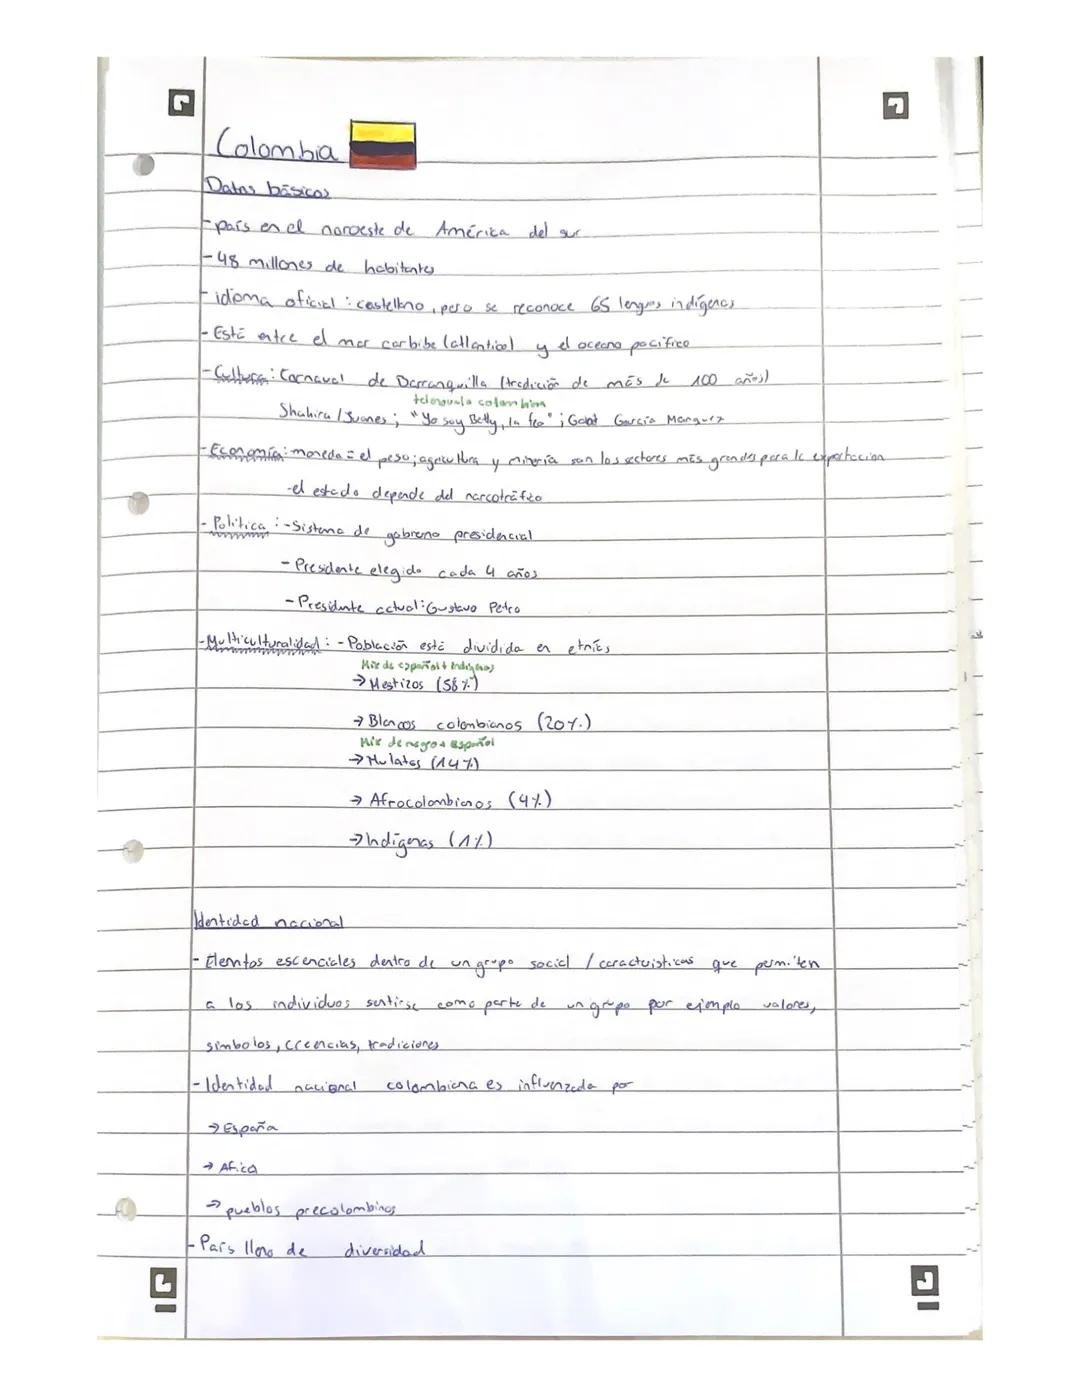 Colombia
Datos básicos
- país en el noroeste de América del sur
- 48 millones de habitantes
- idioma oficial : castellno, pero se reconoce 65 lenguas indígenas
- Está entre el mar carbibe (atlantico) y el oceano pacífico
- Cultura : Carnaval de Barranquilla (tradición de más de 100 años)
telenovela colombiana
Shakira / Juanes ; "Yo soy Betty, la fea" ; Gabriel García Marquez
- Economía: moneda = el peso; agricultura y minería son los sectores más grandes para la exportacion
- el estado depende del narcotráfico
- Política : - Sistema de gobierno presidencial
- Presidente elegido cada 4 años
- Presidente actual : Gustavo Petro
- Multiculturalidad : - Población está dividida en etnias
Mix de español + indígenas
→ Mestizos (58%)
→ Blancos colombianos (20%)
Mix de negro + español
→ Mulatos (14%)
→ Afrocolombianos (4%)
→ Indígenas (1%)
Identidad nacional
- Elemtos escenciales dentro de un grupo social / caracteristicas que permiten
a los individuos sentirse como parte de un grupo por ejemplo valores,
simbolos, creencias, tradiciones
- Identidad nacional colombiana es influenzada por
→ España
→ Africa
→ pueblos precolombinos
- País lleno de diversidad